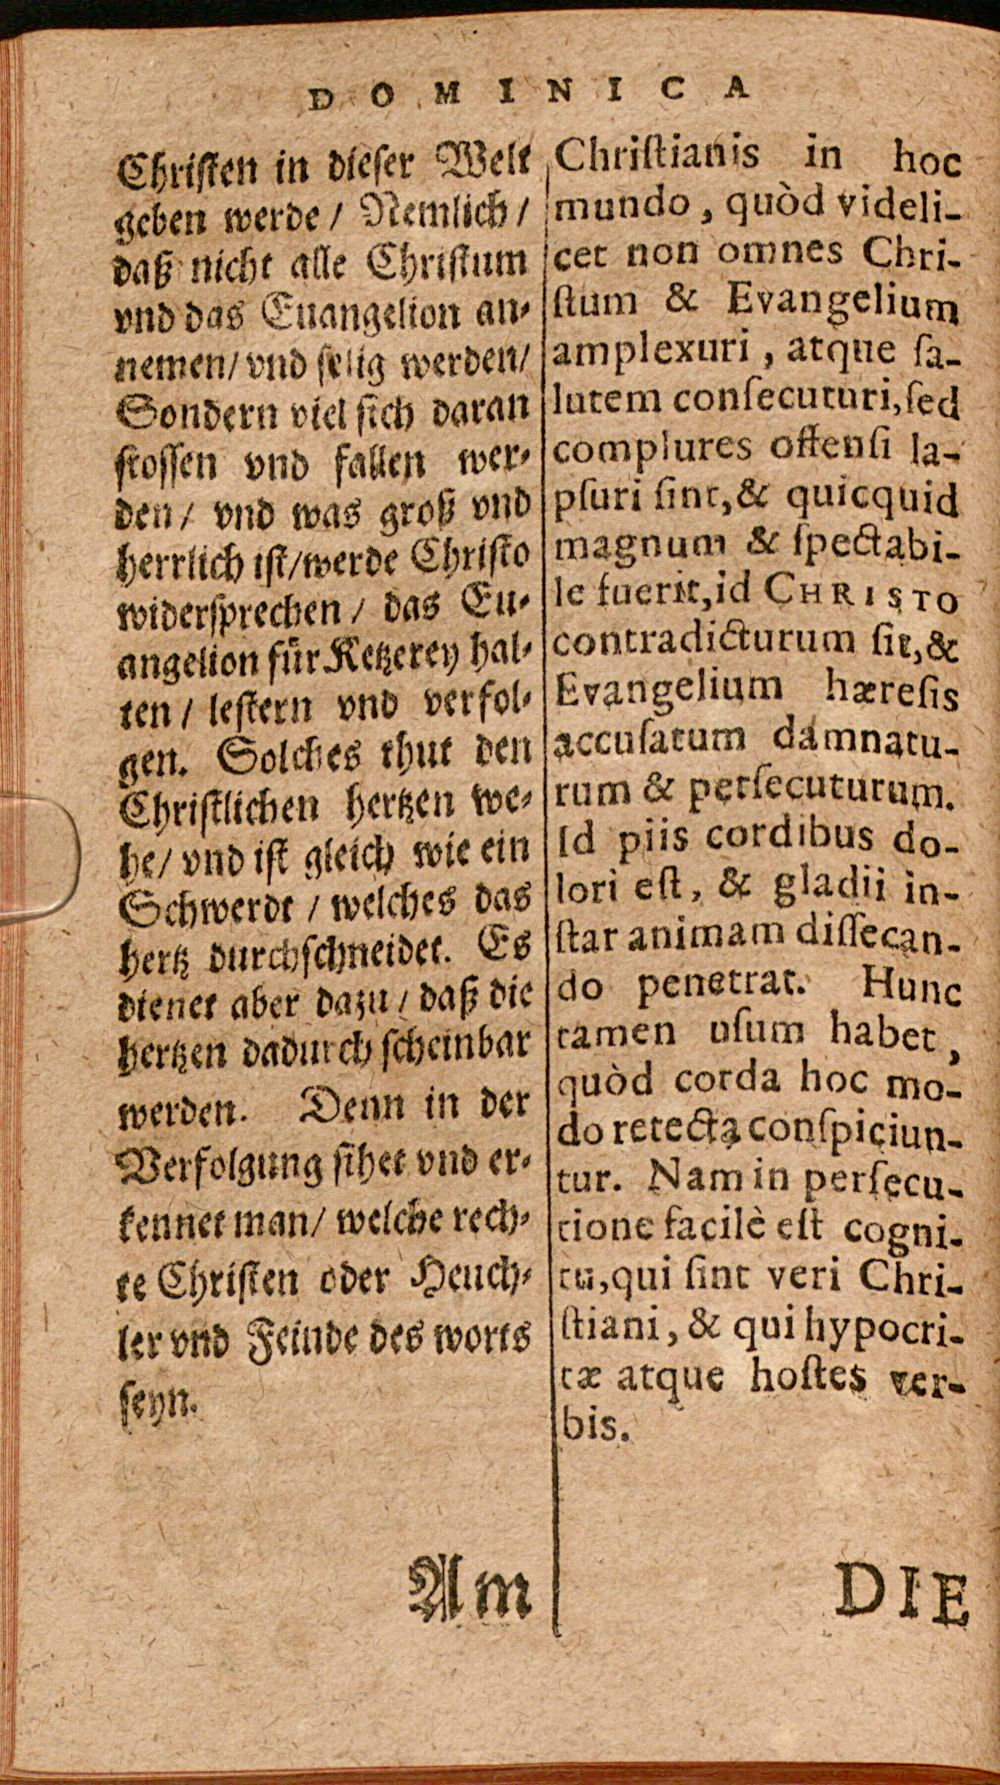 DOMINICA
Christen in dieser Welt
geben werde / Nemlich /
daß nicht alle Christum
vnd das Euangelion an-
nemen / vnd selig werden /
Sondern viel sich daran
stossen vnd fallen wer-
den / vnd was groß vnd
herrlich ist / werde Christo
widersprechen / das Eu-
angelion für Ketzerey hal-
ten / lestern vnd verfol-
gen. Solches thut den
Christlichen hertzen we-
he / vnd ist gleich wie ein
Schwerdt / welches das
hertz durchschneidet. Es
dienet aber dazu / daß die
hertzen dadurch scheinbar
werden. Denn in der
Verfolgung sihet vnd er-
kennet man / welche rech-
te Christen oder Heuch-
ler vnd Feinde des worts
seyn.
Am
Chriſtianis in hoc
mundo, quòd videli-
cet non omnes Chri-
ſtum & Evangelium
amplexuri, atque ſa-
lutem conſecuturi, ſed
complures offenſi la-
pſuri ſint, & quicquid
magnum & ſpectabi-
le fuerit, id CHRISTO
contradicturum ſit, &
Evangelium hæreſis
accuſatum damnatu-
rum & perſecuturum.
Id piis cordibus do-
lori eſt, & gladii in-
ſtar animam diſſecan-
do penetrat. Hunc
tamen uſum habet,
quòd corda hoc mo-
do retecta conſpiciun-
tur. Nam in perſecu-
tione facilè eſt cogni-
tu, qui ſint veri Chri-
ſtiani, & qui hypocri-
tæ atque hoſtes ver-
bis.
DIE